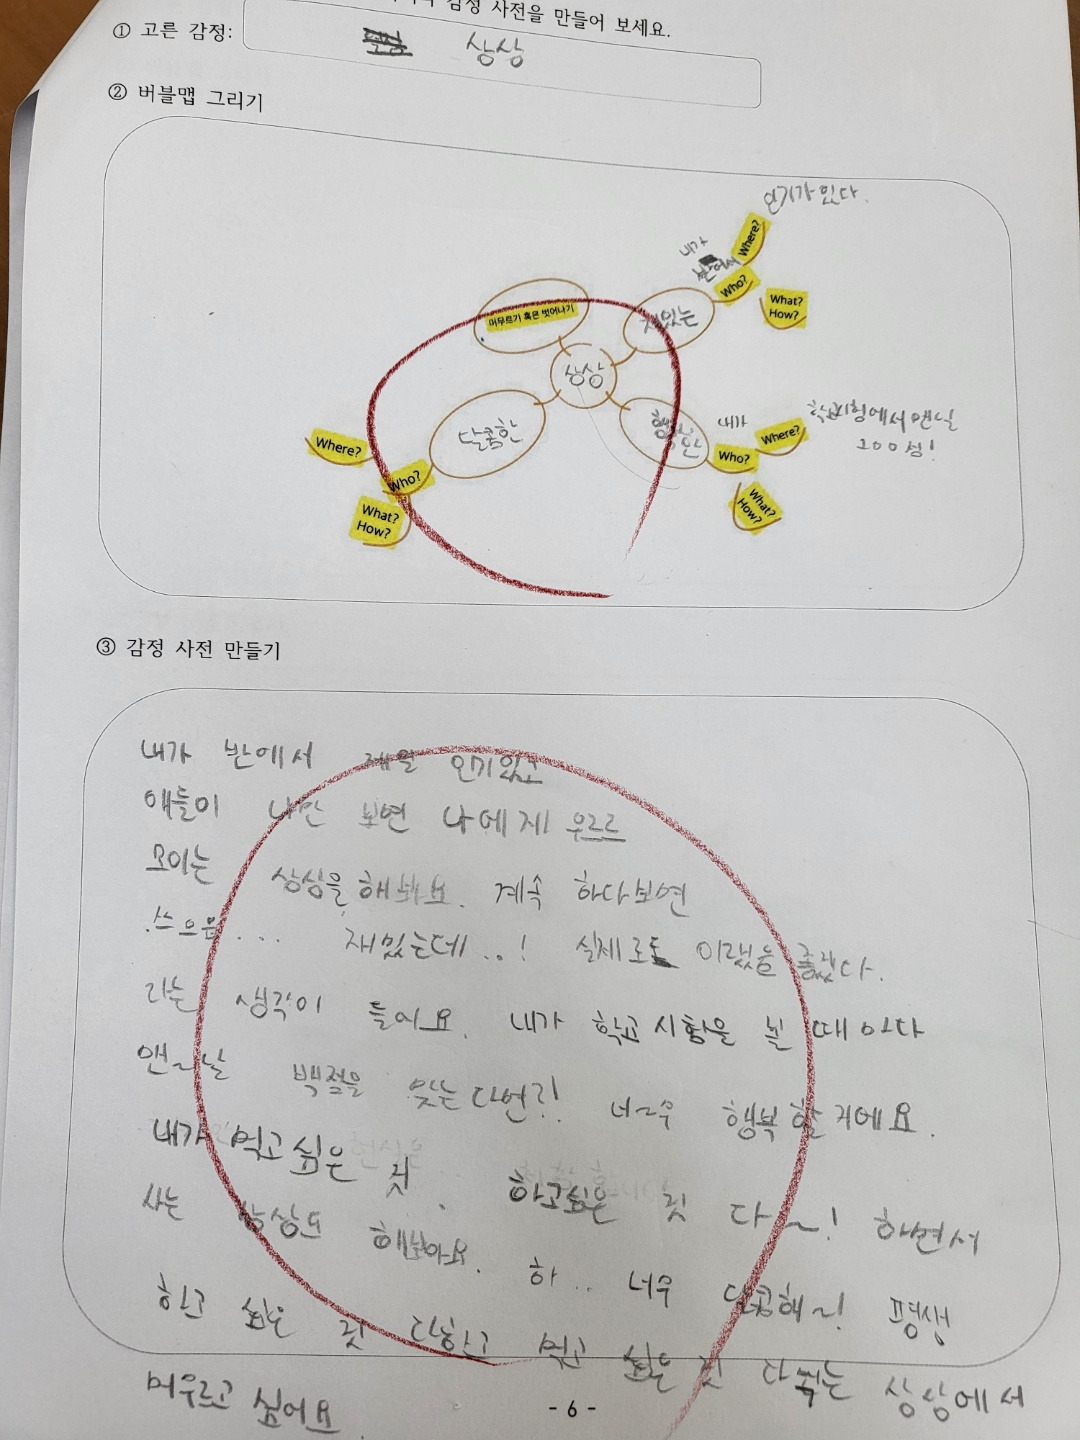 감정 사전을 만들어 보세요.
① 고른 감정:
상상
② 버블맵 그리기
인기가 있다.
Where?
내가
반에서
Who?
What?
How?
머무르기 혹은 벗어나기
재밌는
상상
달콤한
행복한
내가
Who?
Where?
학교시험에서 맨날
100점!
What?
How?
Where?
Who?
What?
How?
③ 감정 사전 만들기
내가 반에서 제일 인기있고
애들이 나만 보면 나에게 우르르
모이는 상상을 해봐요. 계속 하다보면
쓰으읍... 재밌는데..! 실제로도 이랬음 좋겠다.
라는 생각이 들어요. 내가 학교시험을 볼 때 마다
맨~날 백점을 맞는다면?! 너~무 행복할거에요.
내가 먹고싶은 것. 하고싶은 것 다~! 하면서
사는 상상도 해봐요. 하.. 너무 달콤해~! 평생
하고 싶은 것 다하고 먹고 싶은 것 다먹는 상상에서
머무르고 싶어요
- 6 -